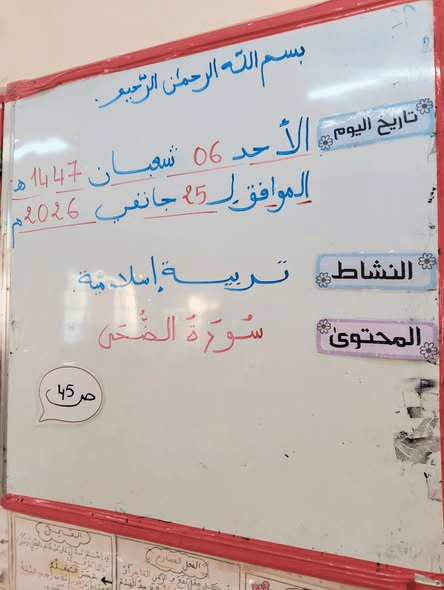 بسم الله الرحمان الرحيم
تاريخ اليوم
الأحد 06 شعبان 1447 هـ
الموافق لـ 25 جانفي 2026 م
النشاط تربية إسلامية
المحتوى سُورَةُ الضُّحَى
ص 45